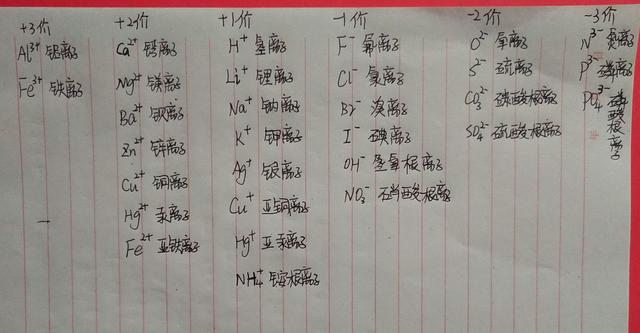 +3价 +2价 +1价 -1价 -2价 -3价
Al³⁺ 铝离子 Ca²⁺ 钙离子 H⁺ 氢离子 F⁻ 氟离子 O²⁻ 氧离子 N³⁻ 氮离子
Fe³⁺ 铁离子 Mg²⁺ 镁离子 Li⁺ 锂离子 Cl⁻ 氯离子 S²⁻ 硫离子 P³⁻ 磷离子
Ba²⁺ 钡离子 Na⁺ 钠离子 Br⁻ 溴离子 CO₃²⁻ 碳酸根离子 PO₄³⁻ 磷酸根离子
Zn²⁺ 锌离子 K⁺ 钾离子 I⁻ 碘离子 SO₄²⁻ 硫酸根离子
Cu²⁺ 铜离子 Ag⁺ 银离子 OH⁻ 氢氧根离子
Hg²⁺ 汞离子 Cu⁺ 亚铜离子 NO₃⁻ 硝酸根离子
Fe²⁺ 亚铁离子 Hg⁺ 亚汞离子
NH₄⁺ 铵根离子